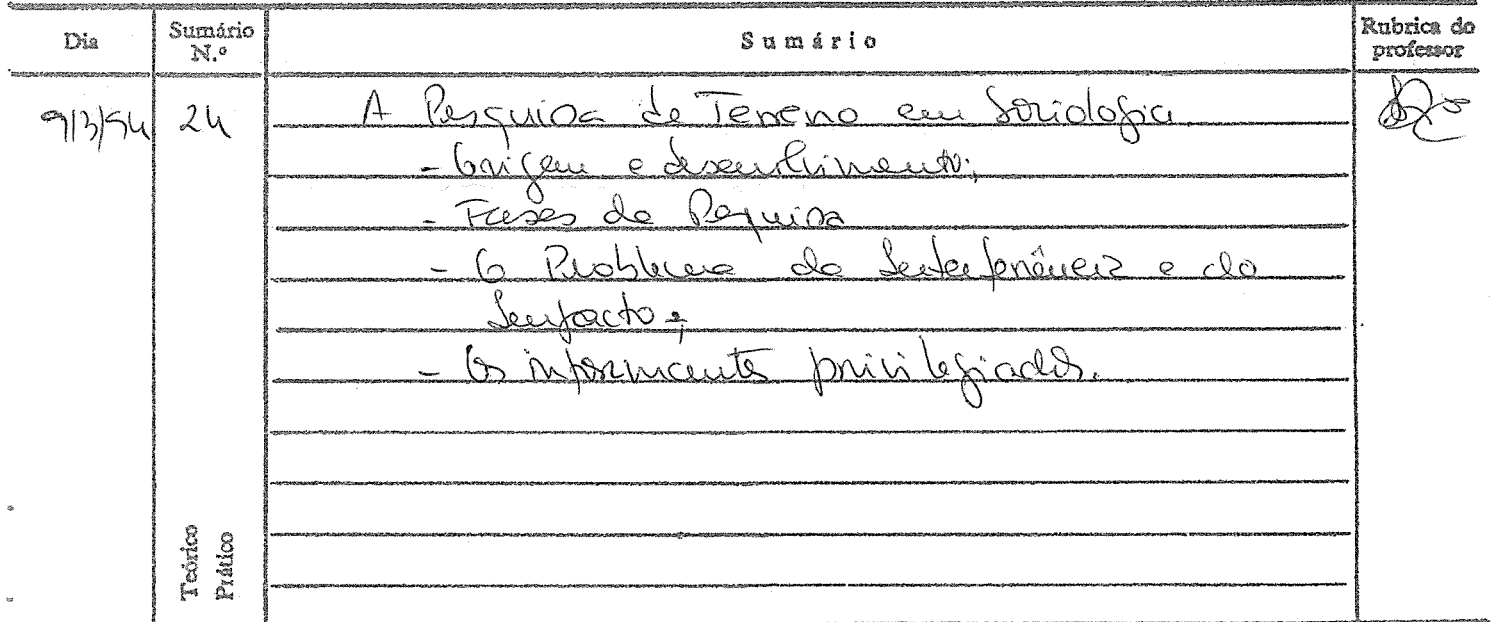 Dia Sumário N.º Sumário Rubrica do professor
9/3/94 24 A Pesquisa de Terreno em Sociologia
- Origem e desenvolvimento;
- Fases da Pesquisa
- O Problema da Interferência e do
Impacto;
- Os informantes privilegiados.
Teórico
Prático